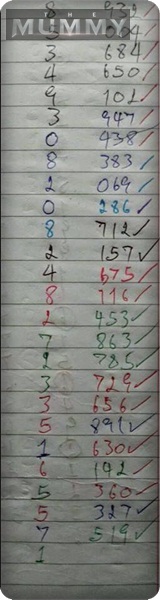 THE
MUMMY
8 932
5 004
3 684
4 650
9 102
3 947
0 438
8 383
2 069
0 286
8 712
2 157
4 675
8 116
2 453
7 863
2 785
3 729
3 656
5 891
1 630
6 192
5 360
5 327
7 519
1